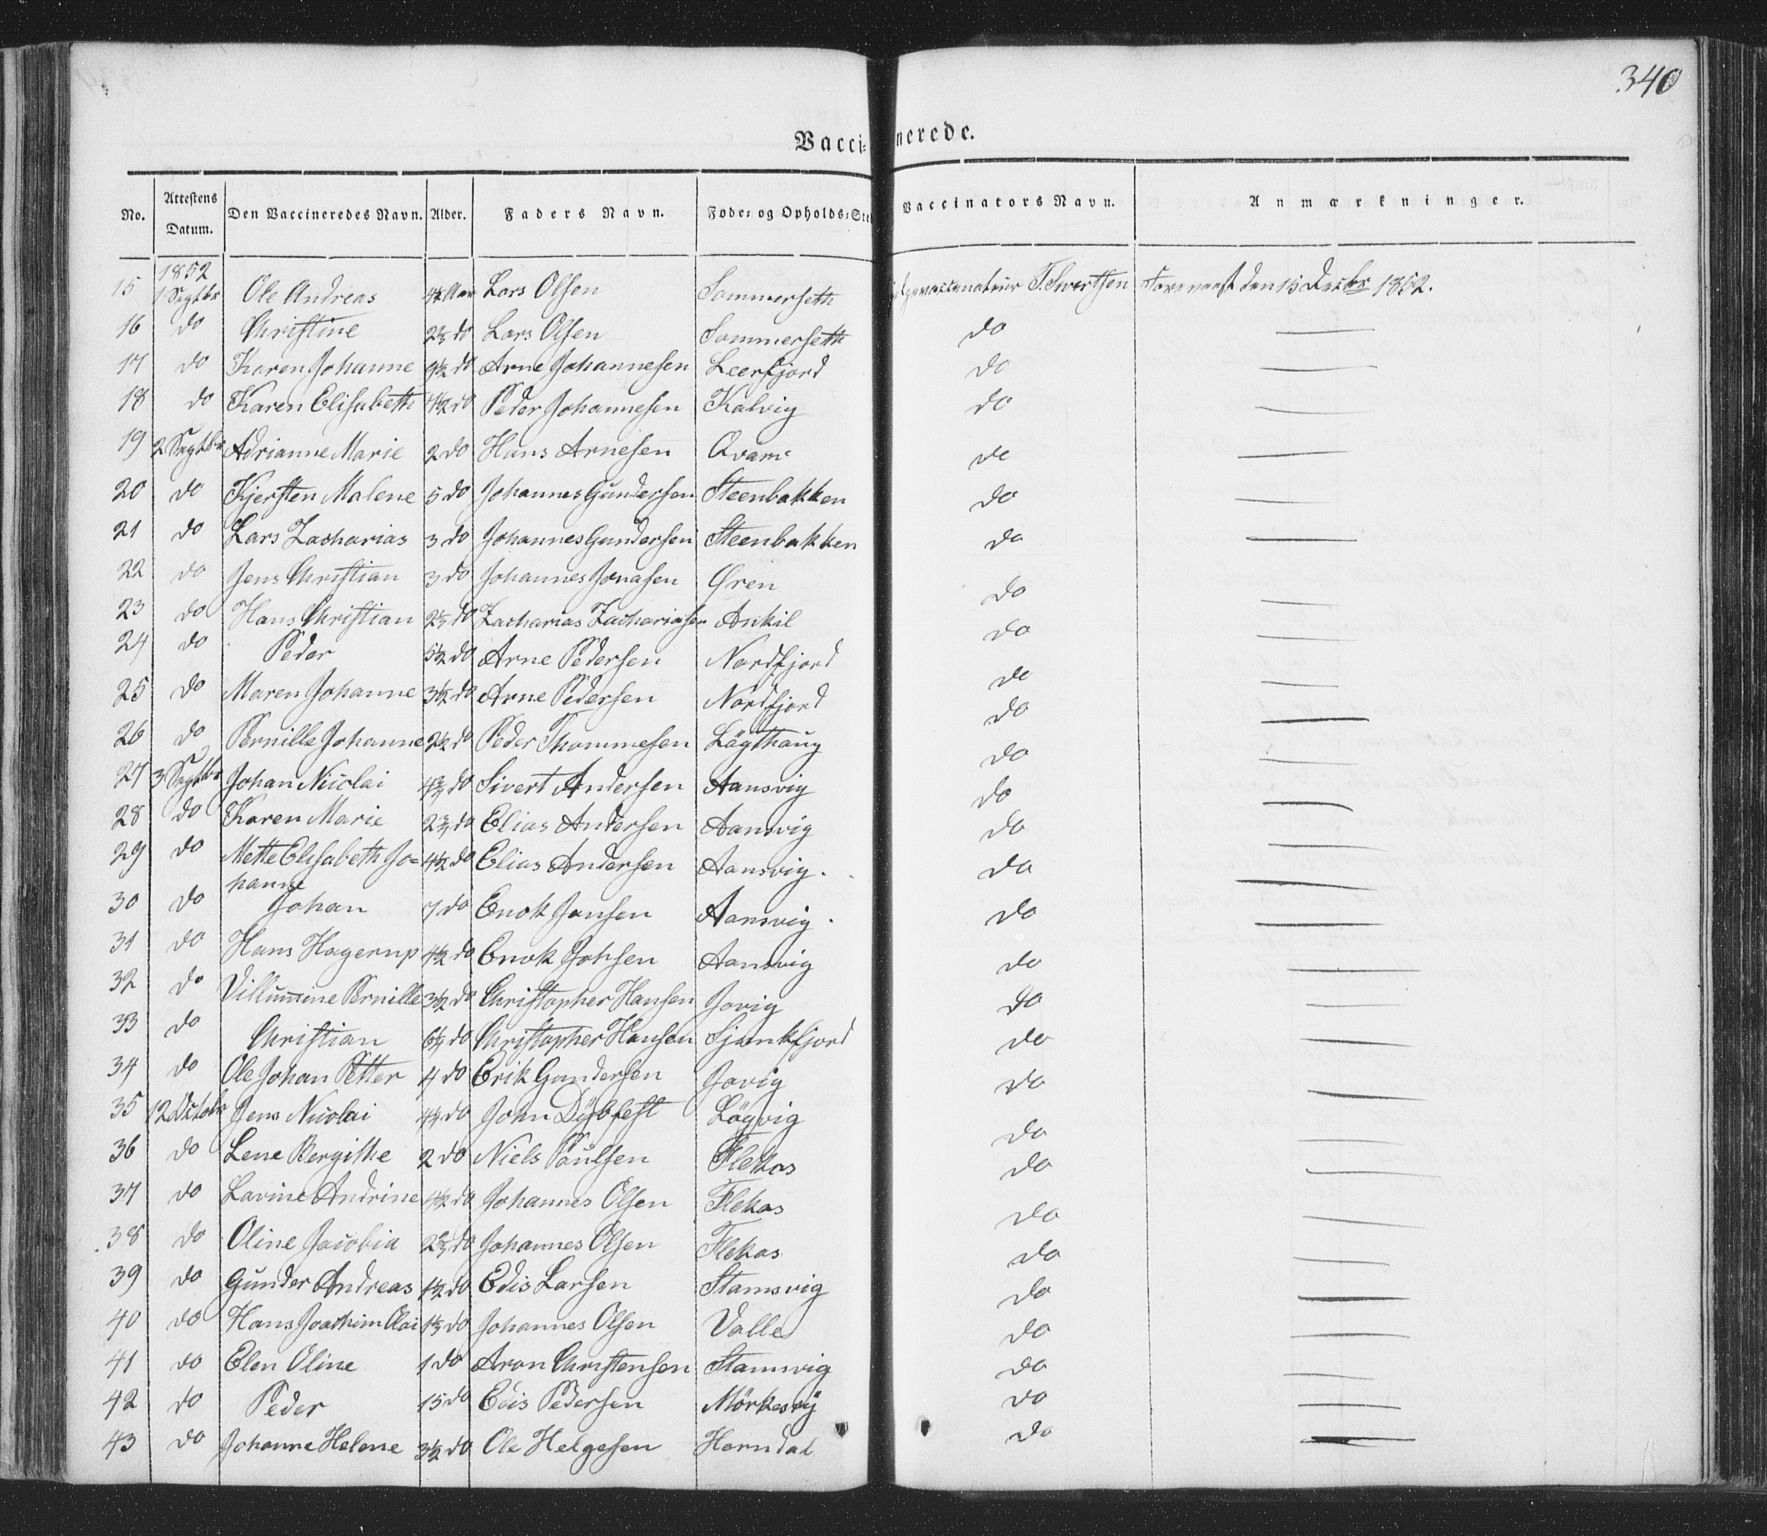 340
Vaccinerede.
No. Attestens Datum. Den Vaccineredes Navn. Alder. Faders Navn. Føde- og Opholds-Sted Vaccinators Navn. Anmærkninger.
1852
15 1 Septbr Ole Andreas Aar Lars Olsen Sommerseth T. Sivertsen Foreneest den 15 Decbr 1852.
16 do Christine do Lars Olsen Sommerseth do —
17 do Karen Johanne 9½ do Arne Johannesen Leerfjord do —
18 do Karen Elisabeth 4½ do Peder Johannesen Kalvig do —
19 2 Septbr Adrianne Marie 2 do Hans Arnesen Qvam do —
20 do Kjersten Malene 5 do Johannes Gundersen Steenbakken do —
21 do Lars Zacharias 3 do Johannes Gundersen Steenbakken do —
22 do Jens Christian 3 do Johannes Jonasen Øren do —
23 do Hans Christian do Zacharias Zachariasen Ankil do —
24 do Peder 5½ do Arne Pedersen Nordfjord do —
25 do Maren Johanne 3½ do Arne Pedersen Nordfjord do —
26 do Pernille Johanne 2½ do Peder Thommesen Løgthaug do —
27 3 Septbr Johan Nicolai do Sivert Andersen Aansvig do —
28 do Karen Marie do Elias Andersen Aansvig do —
29 do Mette Elisabeth Jo= 4½ do Elias Andersen Aansvig. do —
hanne
30 do Johan 7 do Enok Jonsen Aansvig. do —
31 do Hans Hagerup 4½ do Enok Johsen Aansvig do —
32 do Villumine Pernille 3½ do Christopher Hansen Jovig do —
33 do Christian do Christopher Hansen Sjunkfjord do —
34 do Ole Johan Petter 4 do Erik Gundersen Jovig do —
35 12 Octobr Jens Nicolai do John Dybfest Løgvig do —
36 do Lene Bergithe 2 do Niels Paulsen Flekas do —
37 do Lavine Andrine 4½ do Johannes Olsen Flekas do —
38 do Oline Jacobia do Johannes Olsen Flekas do —
39 do Gunder Andreas 1½ do Edis Larsen Stamsvig do —
40 do Hans Joachim Olai do Johannes Olsen Valle do —
41 do Elen Oline 1 do Aron Christensen Stamsvig do —
42 do Peder 15 do Edis Pedersen do —
43 do Johanne Helene 3½ do Ole Helgesen Horndal do —